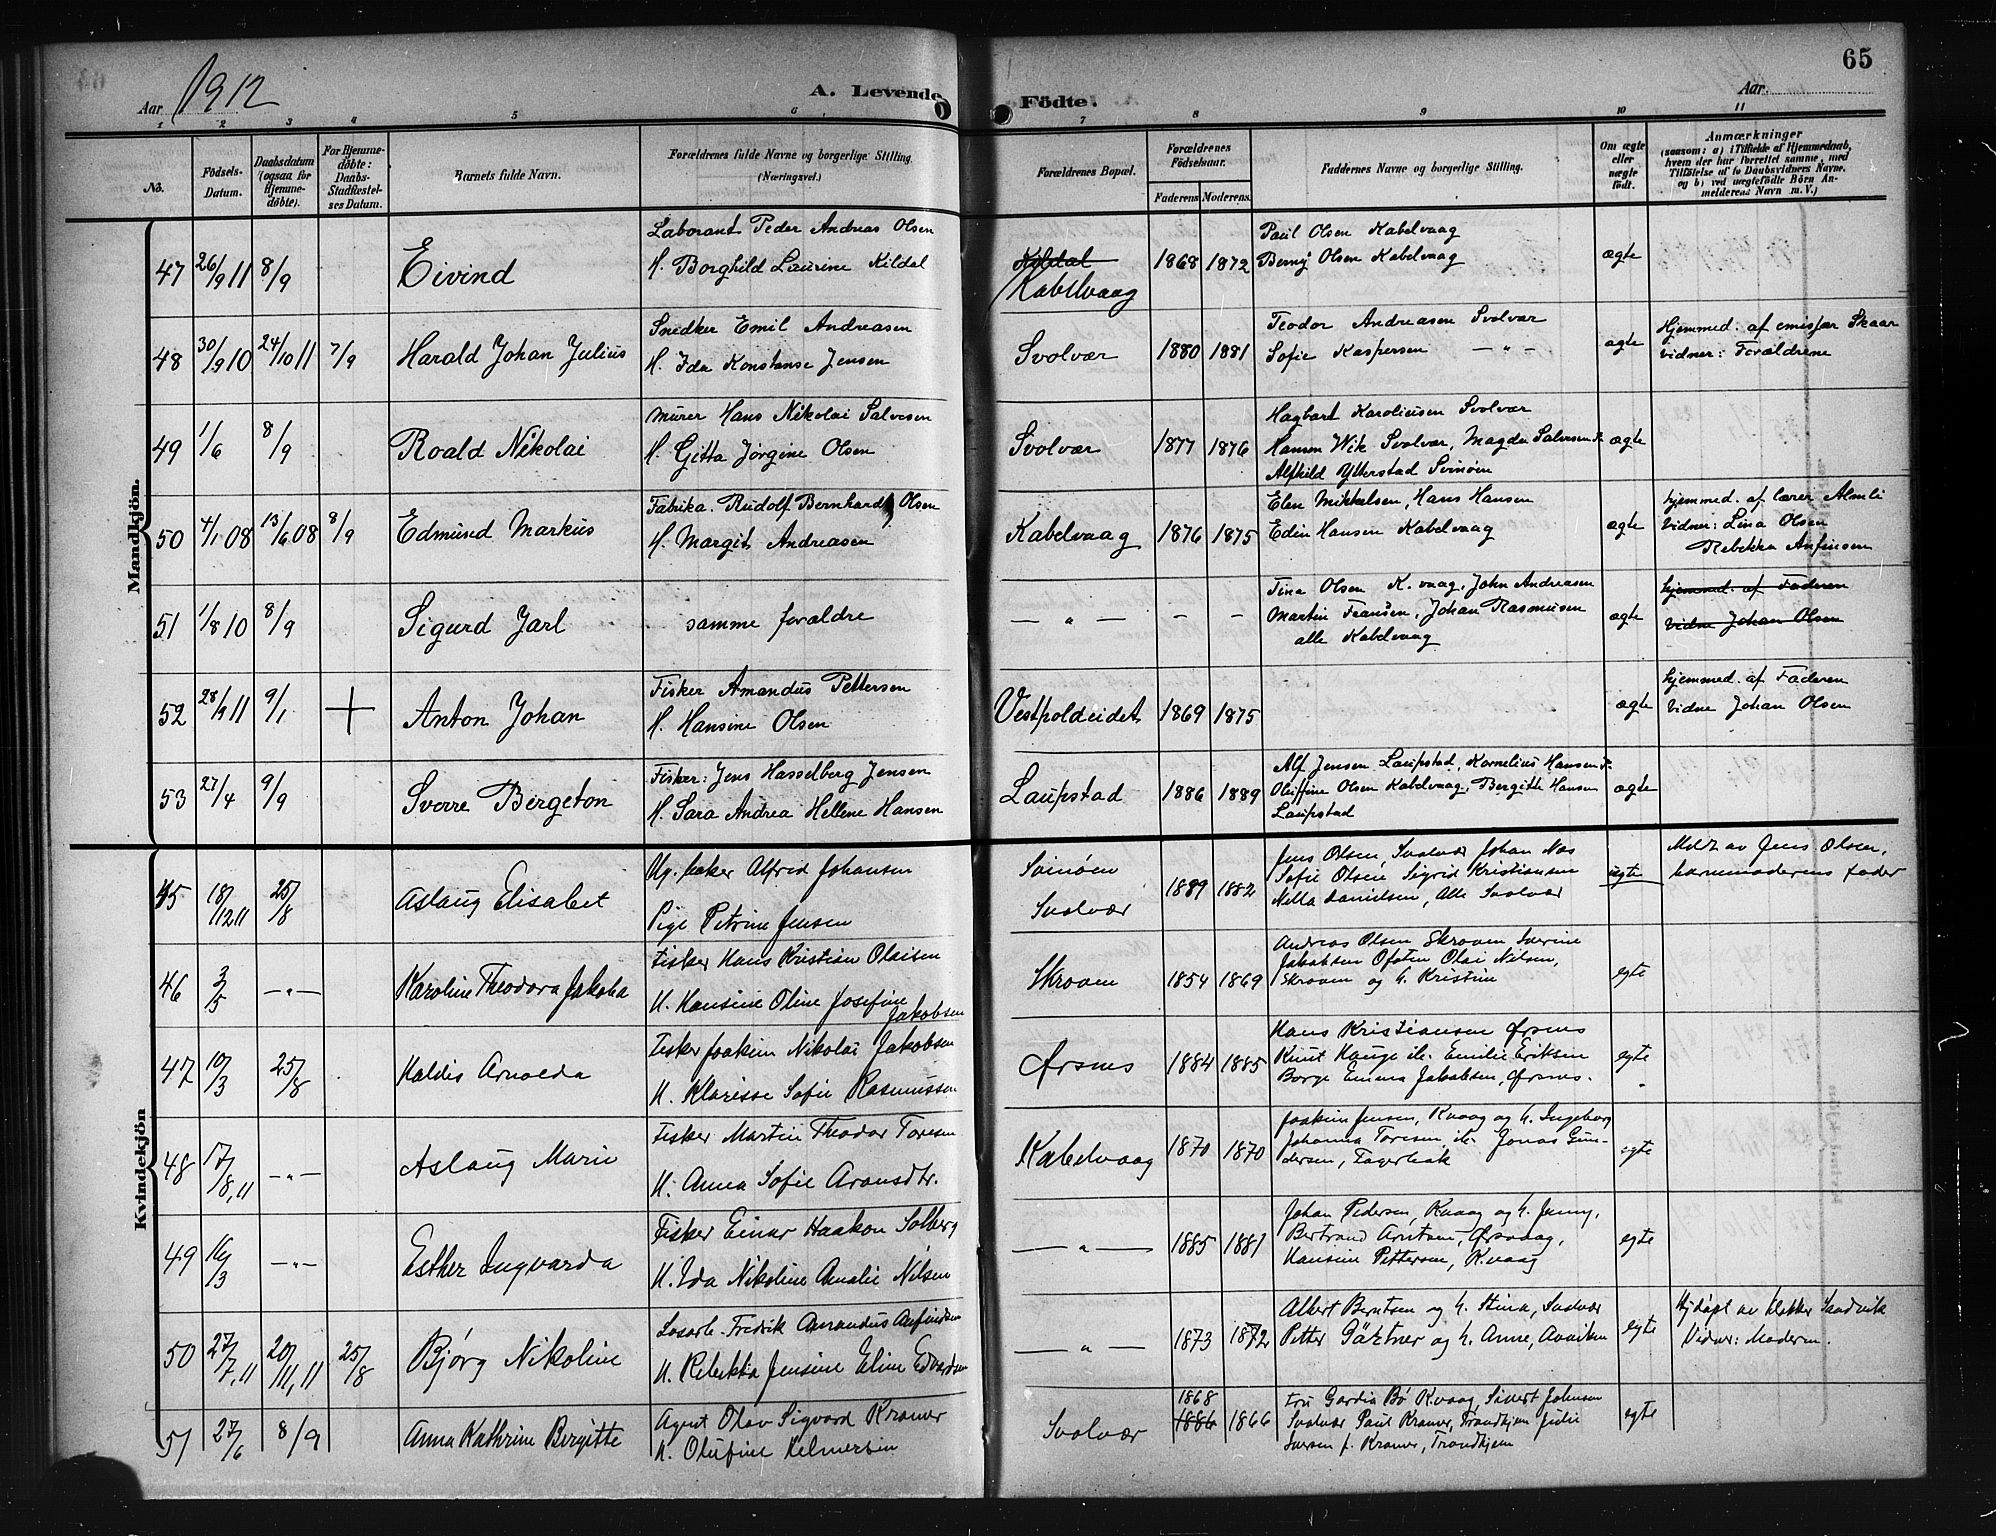 65
Aar 1912
A. Levende Födte.
Aar.
1 2 3 4 5 6 7 8 9 10 11
No.
Födsels-Datum.
Daabsdatum (ogsaa for Hjemme-döbte).
For Hjemme-döbte: Daabs-Stadfæstel-ses Datum.
Barnets fulde Navn.
Forældrenes fulde Navne og borgerlige Stilling. (Næringsvei.)
Forældrenes Bopæl.
Forældrenes Födselsaar.
Faderens Moderens.
Faddernes Navne og borgerlige Stilling.
Om ægte eller uægte födt.
Anmærkninger
(saasom: a) i Tilfælde af Hjemmedaab, hvem der har forrettet samme, med Tilföielse af to Daabsvidners Navne. og b) ved uægtefödte Börn An-melderens Navn m. V.)
Mandkjön.
47 26/9 11 8/9 Eivind
Laborant Peder Andreas Olsen
H. Borghild Laurine Kildal
Kildal
Kabelvaag
1868 1872
Paul Olsen Kabelvaag
Berny Olsen Kabelvaag
ægte
48 30/9 10 24/10 11 7/9 Harald Johan Julius
Snedker Emil Andreasen
H. Ida Konstanse Jensen
Svolvær 1880 1881
Teodor Andreasen Svolvær
Sofie Kaspersen — " —
ægte
Hjemmed. af emisær Skaar
vidner: Forældrene
49 1/6 8/9 Roald Nikolai
Murer Hans Nikolai Salvesen
H. Gitta Jørgine Olsen
Svolvær 1877 1876
Hagbart Karoliusen Svolvær
Hansen Wik Svolvær, Magda Salvesen
Alfhild Ytterstad Svinøen
ægte
50 4/1 08 13/6 08 8/9 Edmund Markus
Fabrika. Rudolf Bernhard Olsen
H. Margit Andreasen
Kabelvaag 1876 1875
Elen Mikkelsen, Hans Hansen
Edin Hansen Kabelvaag
ægte
hjemmed. af lærer Almli
Vidner: Lina Olsen
Rebekka Anfinsen
51 1/8 10 8/9 Sigurd Jarl
samme forældre
— " — - -
Tina Olsen K.vaag, John Andreasen
Martin Fransen, Johan Rasmusen
alle Kabelvaag
ægte
hjemmed. af Faderen
Vidne Johan Olsen
52 28/9 11 9/1 + Anton Johan
Fisker Amandus Pettersen
H. Hansine Olsen
Vestpoldeidet 1869 1875
ægte
hjemmed. af Faderen
Vidne Johan Olsen
53 27/4 9/9 Sverre Bergeton
Fisker: Jens Hasselberg Jensen
H. Sara Andrea Hellene Hansen
Laupstad 1886 1889
Alf Jensen Laupstad, Kornelius Hansen
Oluffine Olsen Kabelvaag, Bergitte Hansen
Laupstad
ægte
Kvindekjön
45 18/12 11 25/8 Aslaug Elisabet
Ug. baker Alfred Johansen
Pige Petrine Jensen
Svinøen
Svolvær
1889 1882
Jens Olsen, Svolvær Johan Næs
Sofie Olsen Sigrid Kristiansen
Nella Danielsen, Alle Svolvær
uegte
Meldt av Jens Olsen,
barnemoderens fader
46 3/5 — " — Karoline Theodora Jakoba
Fisker Hans Kristian Olaisen
H. Hansine Oline Josefine
Jakobsen
Skroven 1854 1869
Andreas Olsen Skroven Severine
Jakobsen Ofoten Olai Nilsen,
Skroven og h. Kristine
egte
47 10/3 25/8 Haldis Arnolda
Fisker Joakim Nikolai Jakobsen
H. Klarisse Sofie Rasmussen
Ørsnes 1884 1885
Hans Kristiansen Ørsnes
Knut Hauge ib. Emilie Eriksen
Borge Emma Jakobsen, Ørsnes.
egte
48 17/8, 11 — " — Aslaug Marie
Fisker Martin Theodor Toresen
H. Anna Sofie Aronsdtr.
Kabelvaag 1870 1870
Joakim Jensen, Kvaag og h. Ingeborg
Johanna Toresen, ib. Jonas Gun-
dersen, Fagerbak
egte
49 16/3 — " — Esther Ingvarda
Fisker Einar Haakon Solberg
H. Ida Nikoline Amalie Nilsen
— " — 1885 1881
Johan Pedersen, Kvaag og h. Jenny,
Bertrand Arntsen, Ørsvaag,
Hansine Pettersen, Kvaag
egte
50 27/7, 11 20/11, 11 25/8 Bjørg Nikoline
Losarb. Fredrik Amandus Anfindsen
H. Rebekka Jensine Eline Edvardsen
— " — 1873 1872
Albert Berntsen og h. Stina, Svolvær
Petter Gärtner og h. Anne,
egte
Hjdöpt av klokker Sandvik
Vidner: Moderen.
51 27/6 8/9 Anna Kathrine Bergitte
Agent Olav Sigvard Kramer
H. Olufine Helmersen
Svolvær 1868 1886 1866
Fru Gardia Bø Kvaag, Sivert Johnsen
Svolvær Paul Kramer, Trondhjem Julie
Iversen f. Kramer, Trondhjem
egte